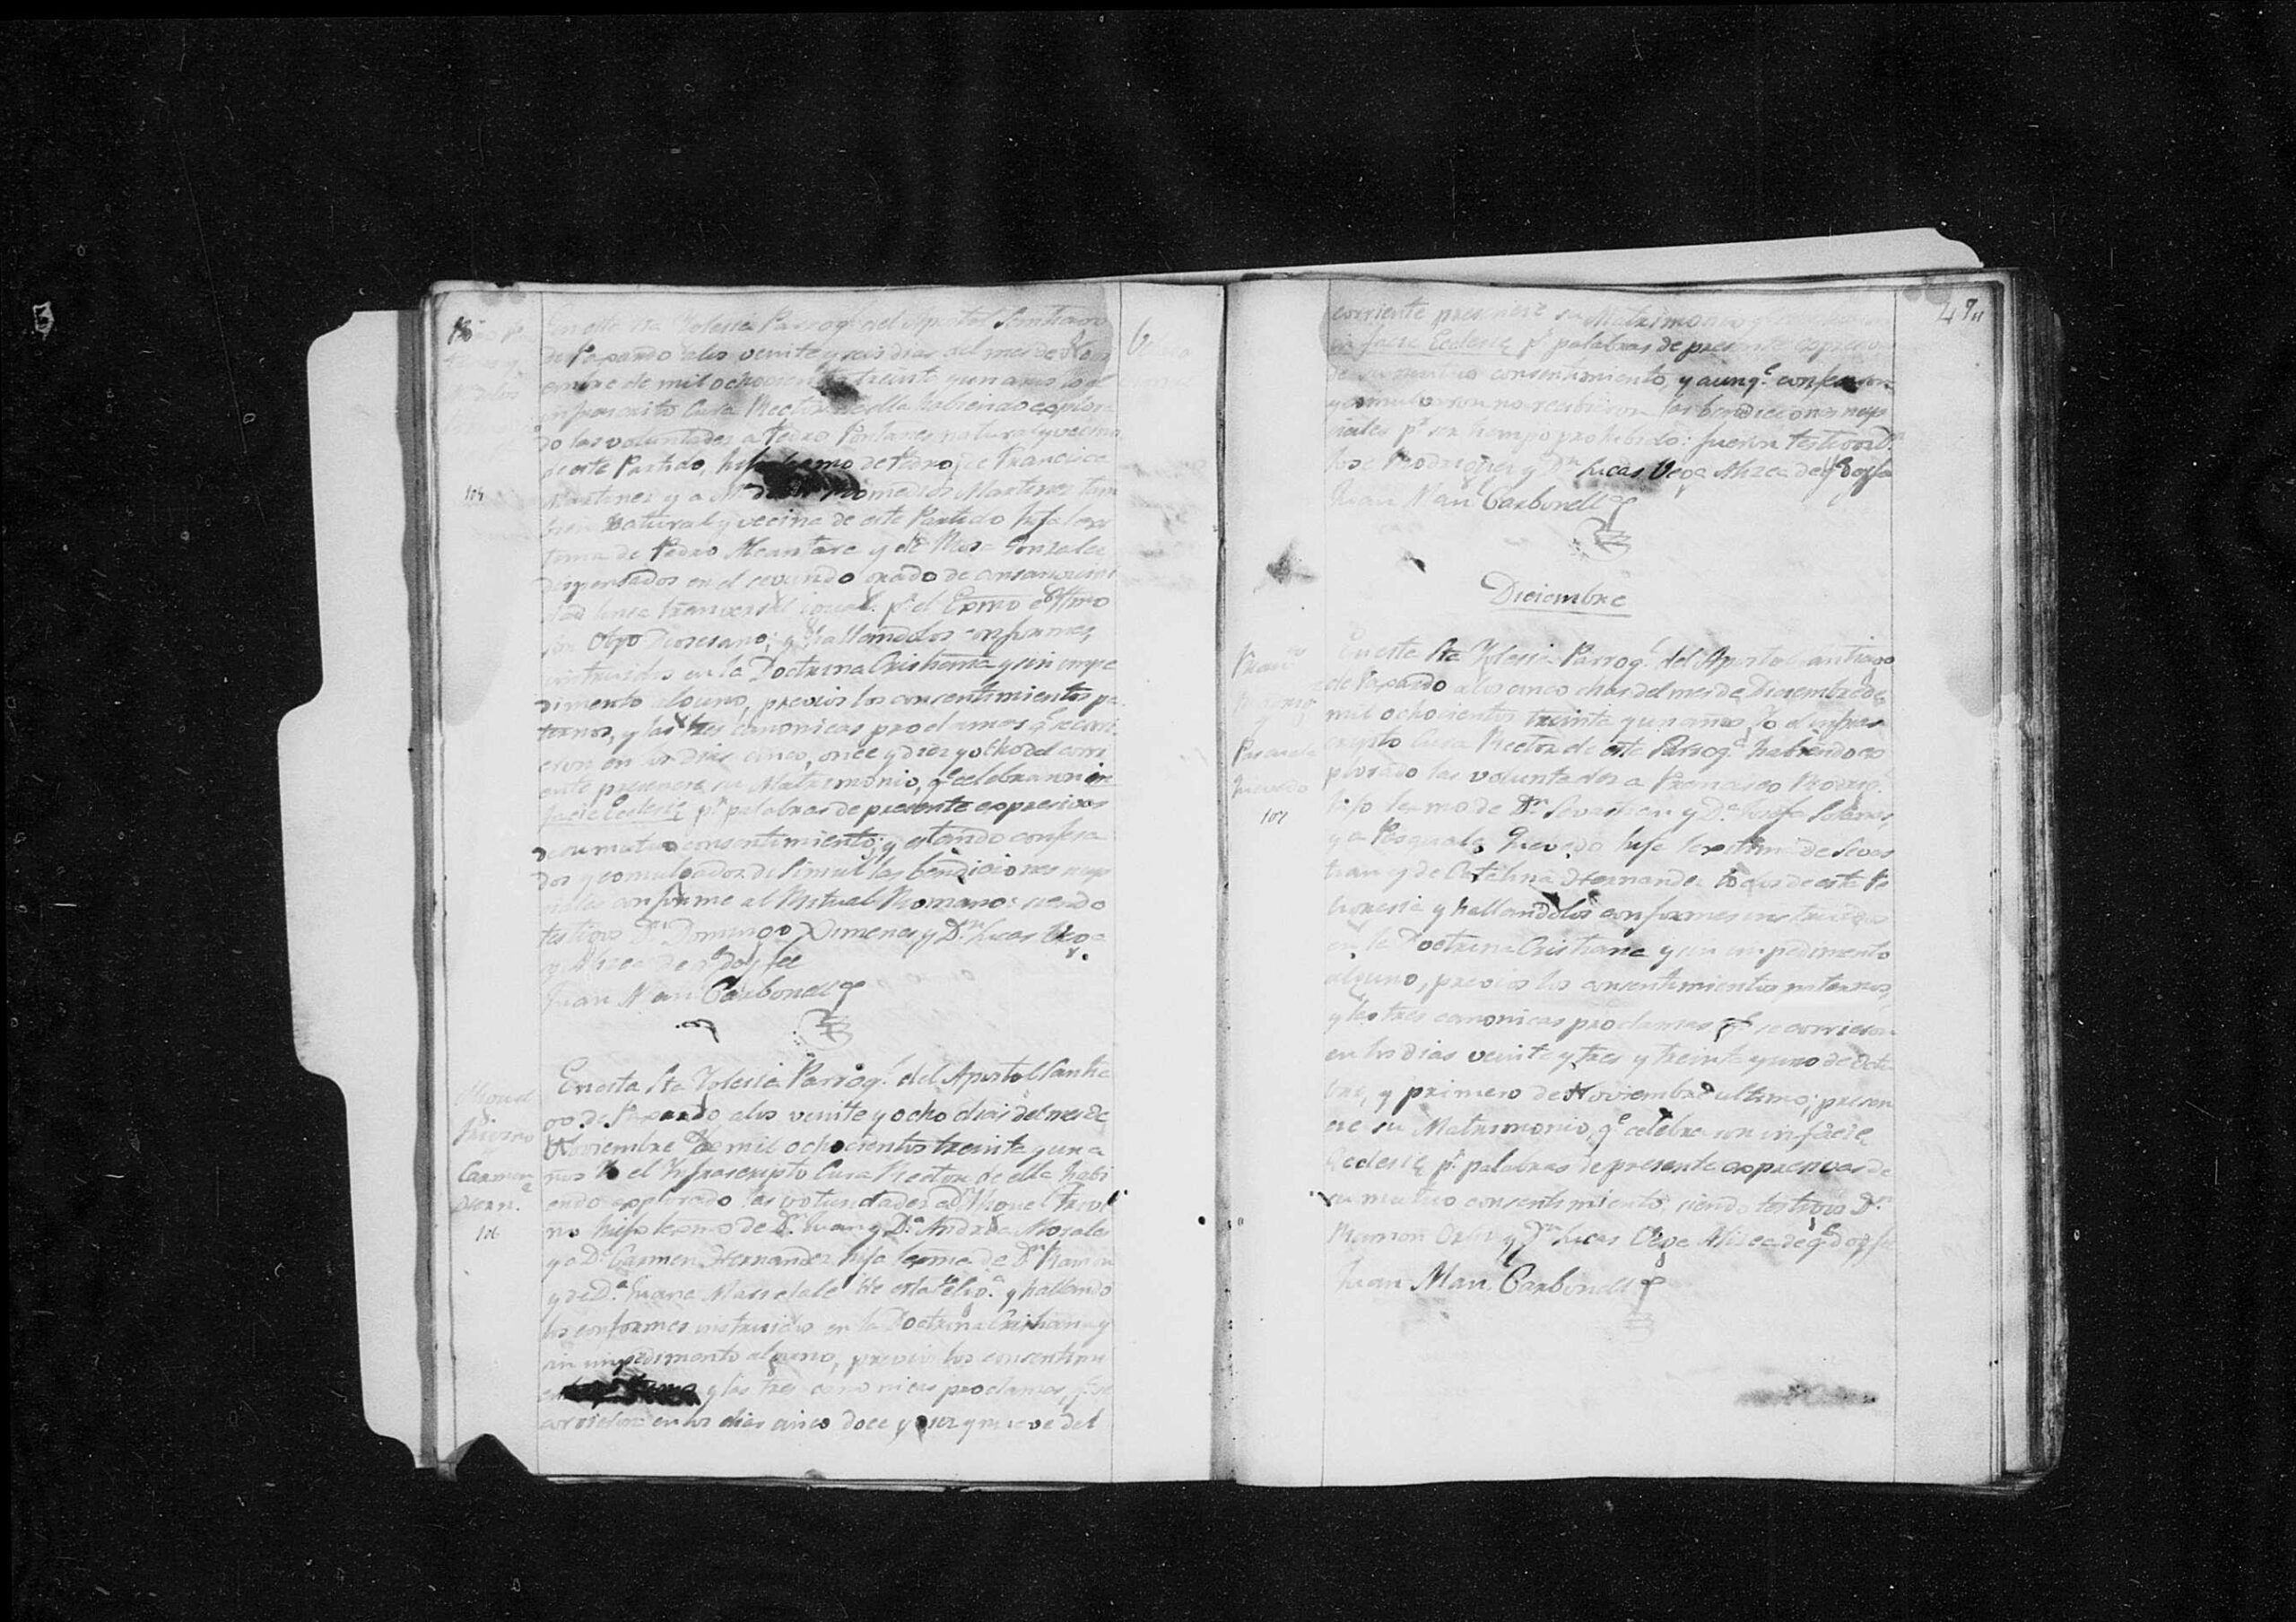 En esta Sta Yglesia Parroql. del Apostol Santiago
de Fajardo a los veinte y seis dias del mes de Novi
embre de mil ochocientos treinta y un años Yo el
infrascrito Cura Rector de ella habiendo explora
do las voluntades a Pedro natural y vecino
de este Partido, hijo de Pedro, y de Francisca
Martinez y a Martinez tam
bien natural y vecina de este Partido hija legi
tima de Pedro Alcantara y de Rosa Gonzalez
dispensados en el segundo grado de consanguini
dad linea transversal igual pr. el Exmo é Yltmo
Sor. Obpo Diocesano; y hallandolos conformes,
instruidos en la Doctrina Cristiana y sin impe
dimento alguno, previos los consentimientos pa
ternos, y las tres canonicas proclamas qe. se corri
eron en los dias cinco, once y diez y ocho del corri
ente presencié su Matrimonio, qe. celebraron in
facie Eclesię pr. palabras de presente expresivas
de su mutuo consentimiento; y estando confesa
dos y comulgados di simul las bendiciones nup
ciales conforme al Ritual Romano: siendo
testigos Dn. Domingo Ximenes y Dn. Lucas Vega
y Alizea de qe. doy fee
Juan Man. Carbonell
Miguel
Carmen
Hern.
106
En esta Sta Yglesia Parroql. del Apostol Santia
go de Fajardo a los veinte y ocho dias del mes de
Noviembre de mil ochocientos treinta y un a
ños Yo el Ynfrascripto Cura Rector de ella habi
endo explorado las voluntades a Dn. Miguel
no hijo legmo de Dn. Juan y Da. Andrea Rosales
y a Da. Carmen Hernandez hija legma de Dn. Ramon
y de Da. Juana de esta Feliga. y hallando
los conformes instruidos en la Doctrina Cristiana y
sin impedimento alguno, previos los consentimi
y las tres canonicas proclamas, qe. se
corrieron en los dias cinco doce y diez y nueve del
47
corriente presencié su Matrimonio
in facie Eclesię pr. palabras de presente expresivas
de su mutuo consentimiento, y aunqe. confesaron
y comulgaron no recibieron las bendiciones nup
ciales pr. ser tiempo prohibido: fueron testigos Dn.
José Rodriguez y Dn. Lucas Vega Alizea de qe. doy fe
Juan Man. Carbonell
Diciembre
Franco.
Rodrig.
y
Pascuala
Quevedo
107
En esta Sta Yglesia Parroql. del Apostol Santiago
de Fajardo a los cinco dias del mes de Diciembre de
mil ochocientos treinta y un años, Yo el infras
cripto Cura Rector de esta Parroqa. habiendo ex
plorado las voluntades a Francisco Rodrig.
hijo legmo de Dn. Sevastian y Da. Josefa
y a Pasquala Quevedo hija legitima de Sevas
tian y de Catalina Hernandez todos de esta Fe
ligresia y hallandolos conformes instruidos
en la Doctrina Cristiana y sin impedimento
alguno, previos los consentimientos paternos,
y las tres canonicas proclamas qe. se corrieron
en los dias veinte y tres y treinta y uno de Octu
bre, y primero de Noviembre ultimo; presen
cié su Matrimonio, qe. celebraron in facie
Eclesię pr. palabras de presente expresivas de
su mutuo consentimiento, siendo testigos Dn.
Ramon Ortiz y Dn. Lucas Vega Alizea de qe. doy fe
Juan Man. Carbonell